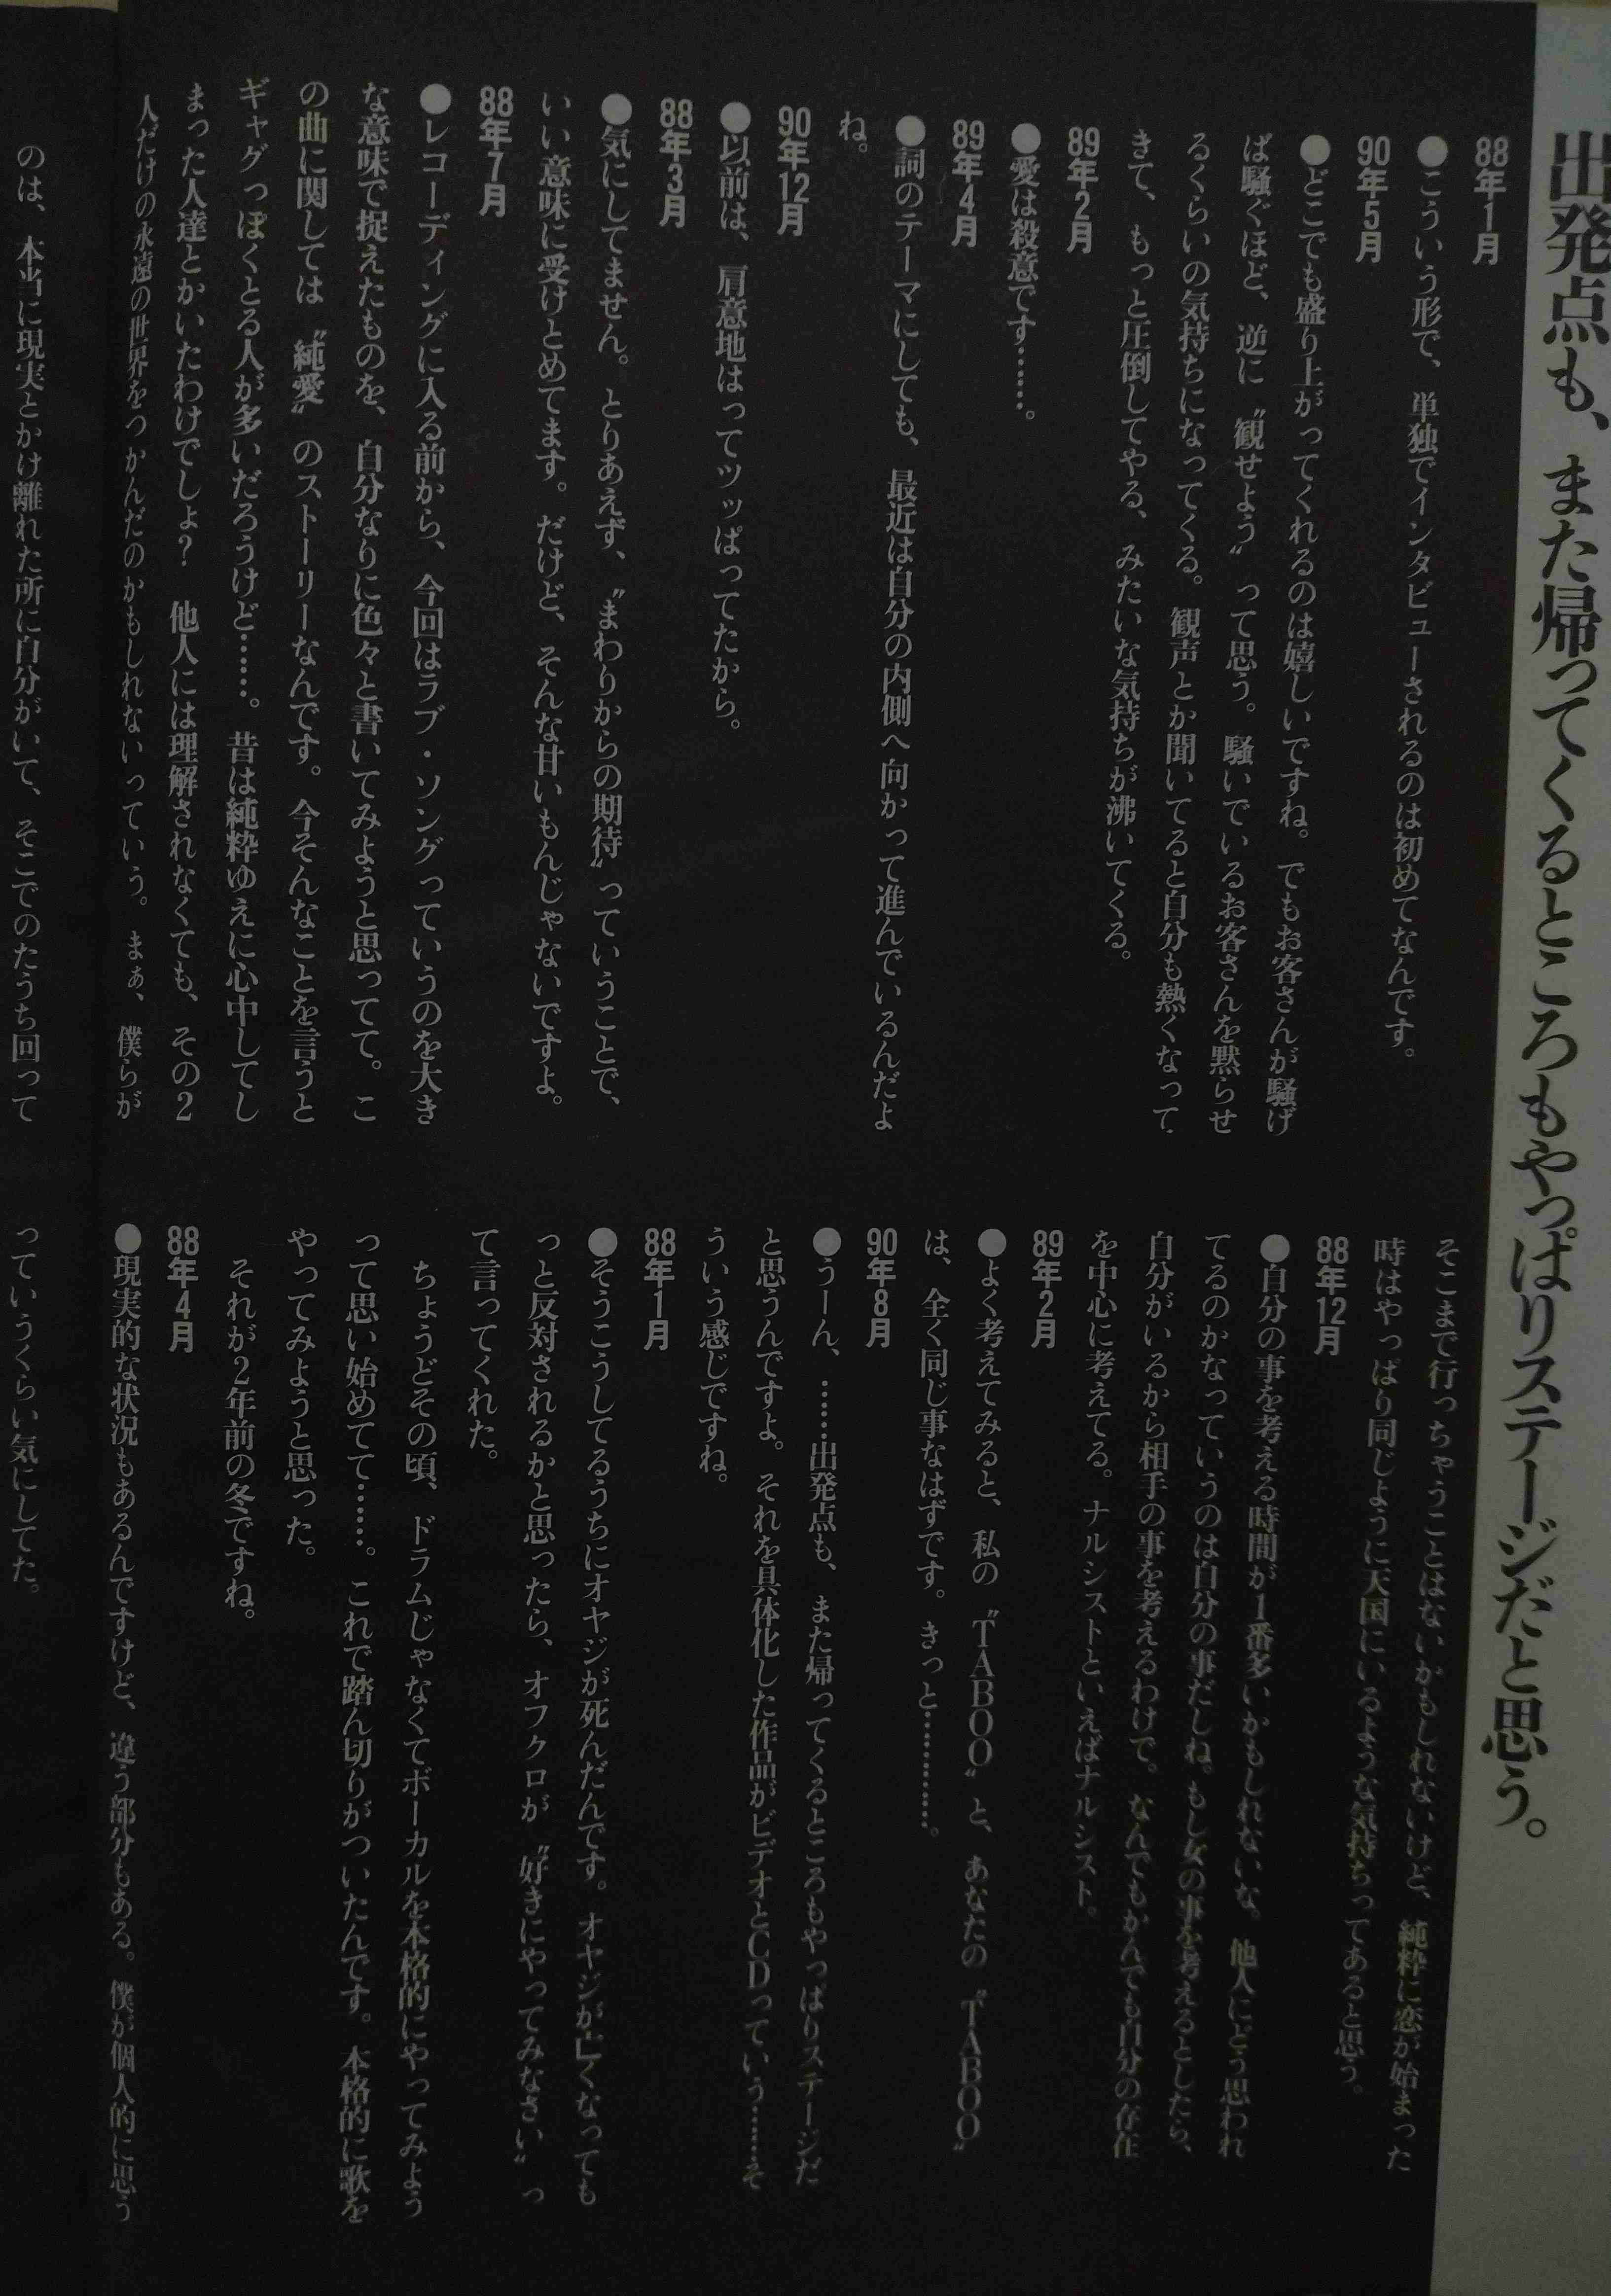 出発点も、また帰ってくるところもやっぱりステージだと思う。
88年1月
●こういう形で、単独でインタビューされるのは初めてなんです。
90年5月
●どこでも盛り上がってくれるのは嬉しいですね。でもお客さんが騒げ
ば騒ぐほど、逆に〝観せよう〟って思う。騒いでいるお客さんを黙らせ
るくらいの気持ちになってくる。観声とか聞いてると自分も熱くなって
きて、もっと圧倒してやる、みたいな気持ちが沸いてくる。
89年2月
●愛は殺意です……。
89年4月
●詞のテーマにしても、最近は自分の内側へ向かって進んでいるんだよ
ね。
90年12月
●以前は、肩意地はってツッぱってたから。
88年3月
●気にしてません。とりあえず、〝まわりからの期待〟っていうことで、
いい意味に受けとめてます。だけど、そんな甘いもんじゃないですよ。
88年7月
●レコーディングに入る前から、今回はラブ・ソングっていうのを大き
な意味で捉えたものを、自分なりに色々と書いてみようと思ってて。こ
の曲に関しては〝純愛〟のストーリーなんです。今そんなことを言うと
ギャグっぽくとる人が多いだろうけど……。昔は純粋ゆえに心中してし
まった人達とかいたわけでしょ？　他人には理解されなくても、その2
人だけの永遠の世界をつかんだのかもしれないっていう。まぁ、僕らが
のは、本当に現実とかけ離れた所に自分がいて、そこでのたうち回って
そこまで行っちゃうことはないかもしれないけど、純粋に恋が始まった
時はやっぱり同じように天国にいるような気持ちってあると思う。
88年12月
●自分の事を考える時間が1番多いかもしれないな。他人にどう思われ
てるのかなっていうのは自分の事だしね。もし女の事を考えるとしたら、
自分がいるから相手の事を考えるわけで。なんでもかんでも自分の存在
を中心に考えてる。ナルシストといえばナルシスト。
89年2月
●よく考えてみると、私の〝TABOO〟と、あなたの〝TABOO〟
は、全く同じ事なはずです。きっと…………。
90年8月
●うーん、……出発点も、また帰ってくるところもやっぱりステージだ
と思うんですよ。それを具体化した作品がビデオとCDっていう……そ
ういう感じですね。
88年1月
●そうこうしてるうちにオヤジが死んだんです。オヤジが亡くなっても
っと反対されるかと思ったら、オフクロが〝好きにやってみなさい〟っ
て言ってくれた。
ちょうどその頃、ドラムじゃなくてボーカルを本格的にやってみよう
って思い始めてて……。これで踏ん切りがついたんです。本格的に歌を
やってみようと思った。
それが2年前の冬ですね。
88年4月
●現実的な状況もあるんですけど、違う部分もある。僕が個人的に思う
っていうくらい気にしてた。